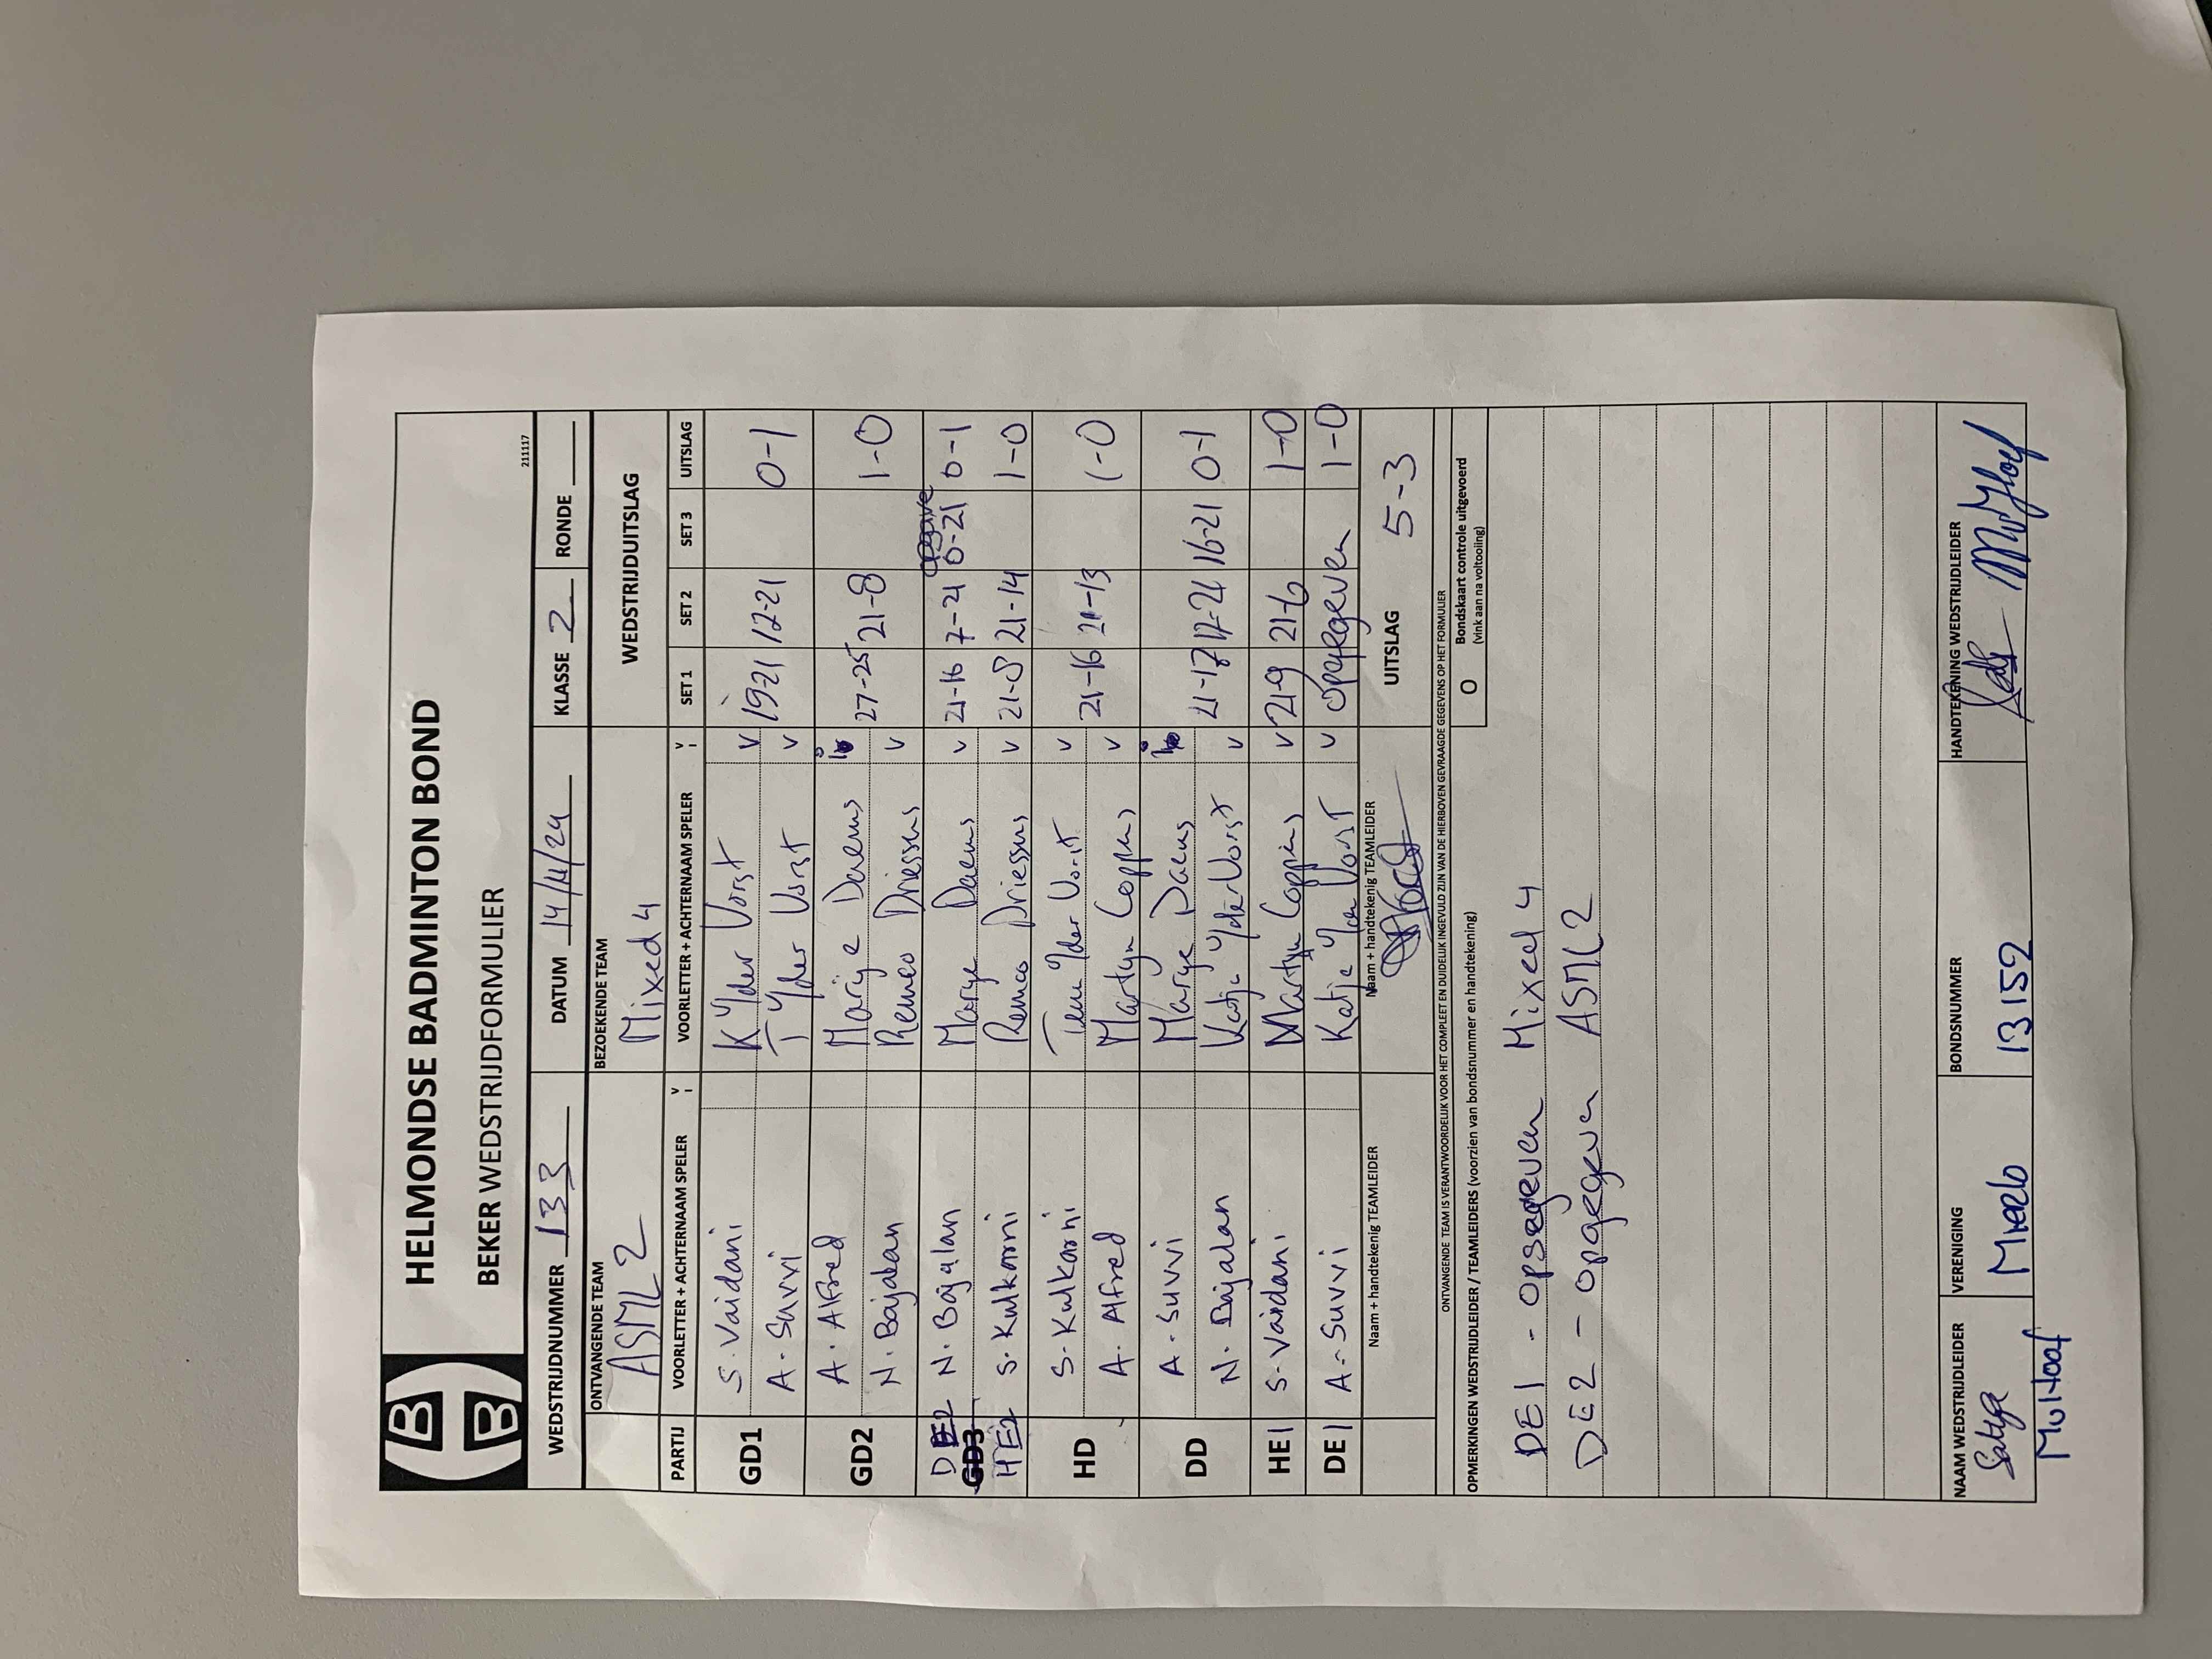 HELMONDSE BADMINTON BOND
BEKER WEDSTRIJDFORMULIER
211117
WEDSTRIJDNUMMER 133 DATUM 14/4/24 KLASSE 2 RONDE
ONTVANGENDE TEAM BEZOEKENDE TEAM WEDSTRIJDUITSLAG
ASML 2 Mixed 4
PARTIJ VOORLETTER + ACHTERNAAM SPELER V I VOORLETTER + ACHTERNAAM SPELER V I SET 1 SET 2 SET 3 UITSLAG
GD1 S. Vaidani K v/der Vorst v 19-21 12-21 0-1
A. Suvvi T v/der Vorst v
GD2 A. Alfred Marije Daems 27-25 21-8 1-0
N. Bajalan Remco Driessens v
DE2 N. Bajalan Marije Daems v 21-16 7-21 0-21 0-1
GD3
HE2 S. Kulkarni Remco Driessens v 21-8 21-14 1-0
HD S. Kulkarni Teun v/der Vorst v 21-16 21-13 1-0
A. Alfred Martyn Coppens v
DD A. Suvvi Marije Daems 21-17 12-21 16-21 0-1
N. Bajalan Katja v/der Vorst v
HE1 S. Vaidani Martyn Coppens v 21-9 21-6 1-0
DE1 A. Suvvi Katja v/der Vorst v opgegeven 1-0
Naam + handtekenig TEAMLEIDER Naam + handtekenig TEAMLEIDER UITSLAG 5-3
ONTVANGENDE TEAM IS VERANTWOORDELIJK VOOR HET COMPLEET EN DUIDELIJK INGEVULD ZIJN VAN DE HIERBOVEN GEVRAAGDE GEGEVENS OP HET FORMULIER
OPMERKINGEN WEDSTRIJDLEIDER / TEAMLEIDERS (voorzien van bondsnummer en handtekening) O Bondskaart controle uitgevoerd
(vink aan na voltooling)
DE1 - opgegeven Mixed 4
DE2 - opgegeven ASML 2
NAAM WEDSTRIJDLEIDER VERENIGING BONDSNUMMER HANDTEKENING WEDSTRIJDLEIDER
Mierlo 13152